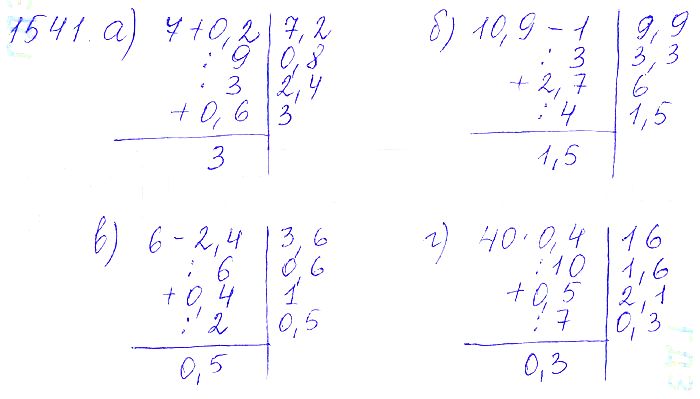 1541. а) 7 + 0,2 | 7,2
: 9 | 0,8
· 3 | 2,4
+ 0,6 | 3
3
б) 10,9 - 1 | 9,9
: 3 | 3,3
+ 2,7 | 6
: 4 | 1,5
1,5
в) 6 - 2,4 | 3,6
: 6 | 0,6
+ 0,4 | 1
: 2 | 0,5
0,5
г) 40 · 0,4 | 16
: 10 | 1,6
+ 0,5 | 2,1
: 7 | 0,3
0,3